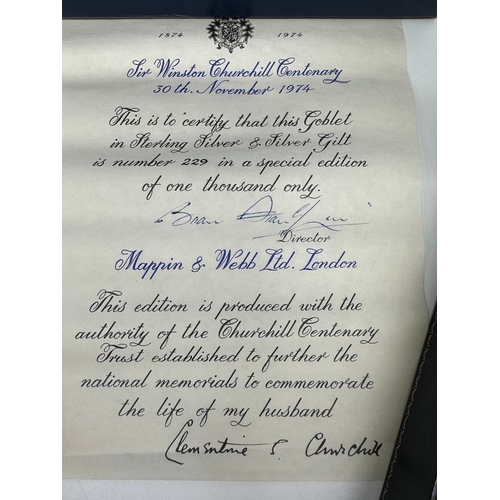 1874 1974
Sir Winston Churchill Centenary
30th. November 1974
This is to certify that this Goblet
in Sterling Silver & Silver Gilt
is number 229 in a special edition
of one thousand only.
Director
Mappin & Webb Ltd. London
This edition is produced with the
authority of the Churchill Centenary
Trust established to further the
national memorials to commemorate
the life of my husband
Clementine S. Churchill